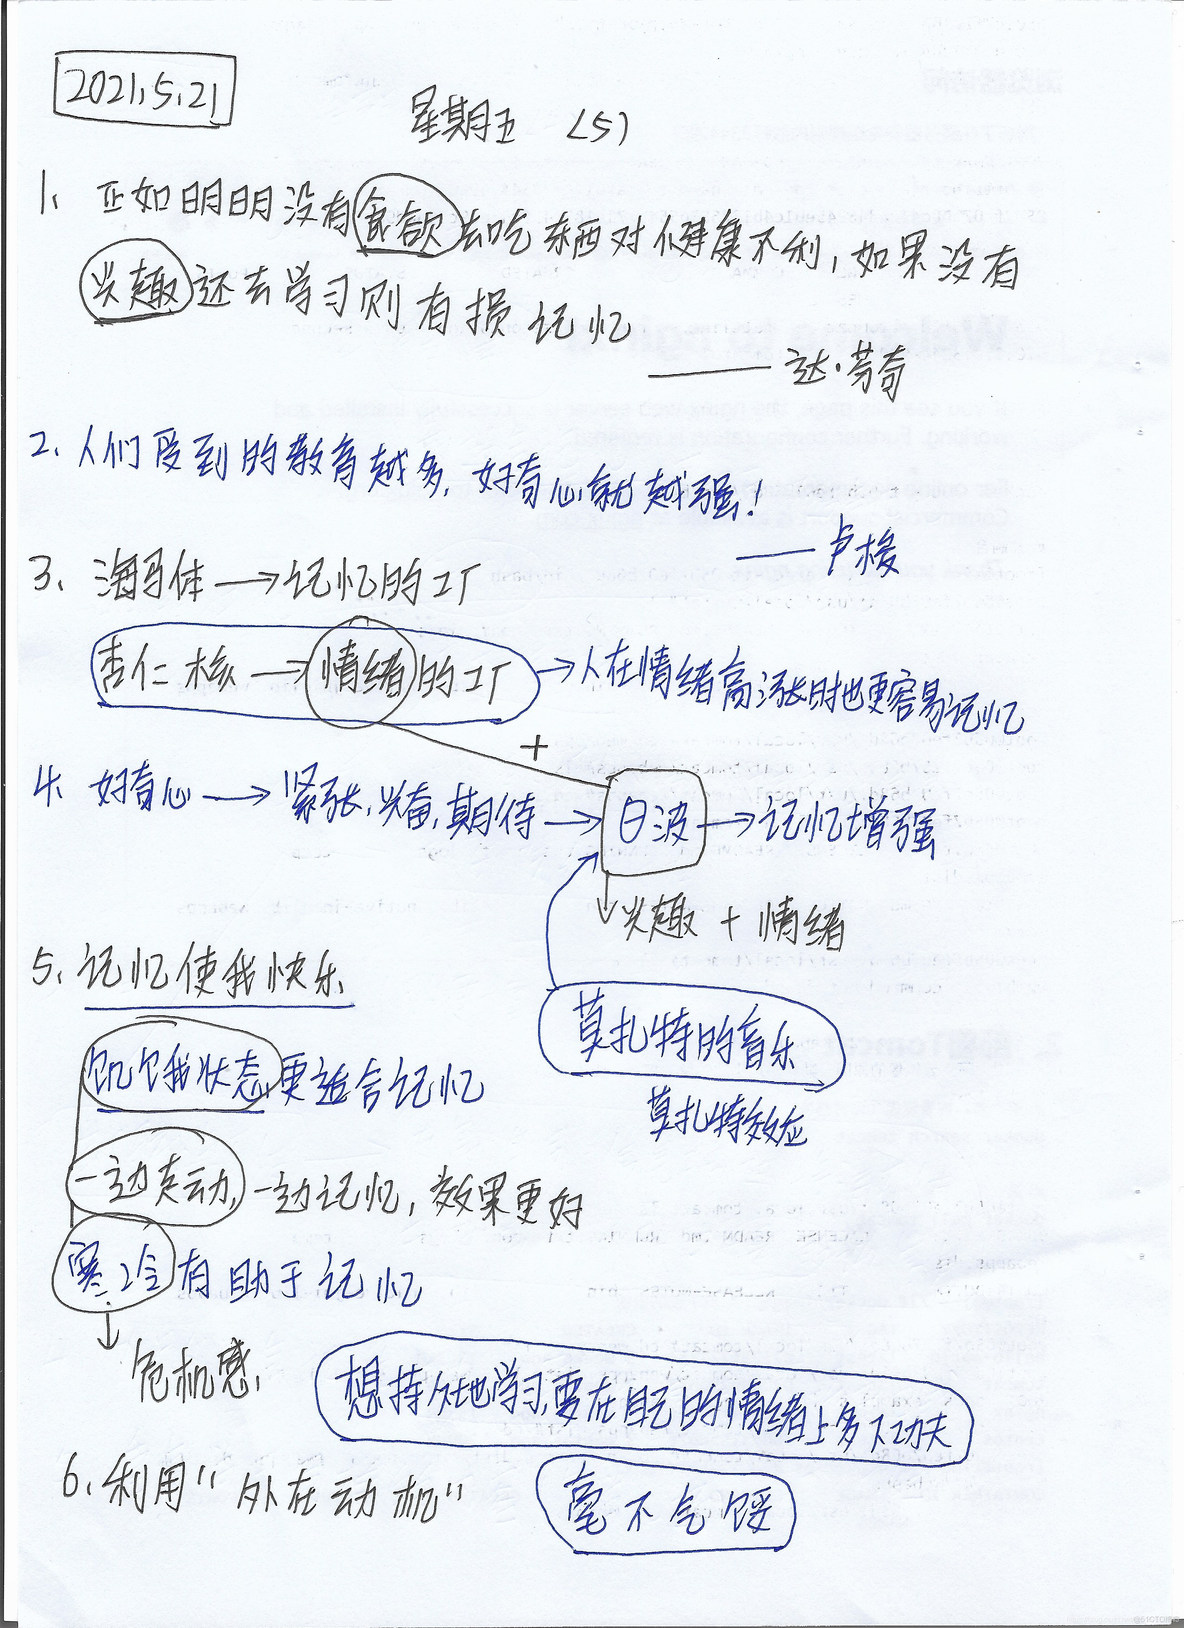 2021.5.21
星期五 (5)
1. 正如明明没有食欲去吃东西对健康不利,如果没有
兴趣还去学习则有损记忆
—— 达·芬奇
2. 人们受到的教育越多,好奇心就越强!
—— 卢梭
3. 海马体→记忆的工厂
杏仁核→情绪的工厂→人在情绪高涨时也更容易记忆
+
4. 好奇心→紧张,兴奋,期待→θ波→记忆增强
↓兴趣 + 情绪
5. 记忆使我快乐
莫扎特的音乐
饥饿状态更适合记忆
莫扎特效应
一边走动,一边记忆,效果更好
寒冷有助于记忆
↓
危机感.
想持久地学习,要在自己的情绪上多下功夫
6. 利用"外在动机"
毫不气馁